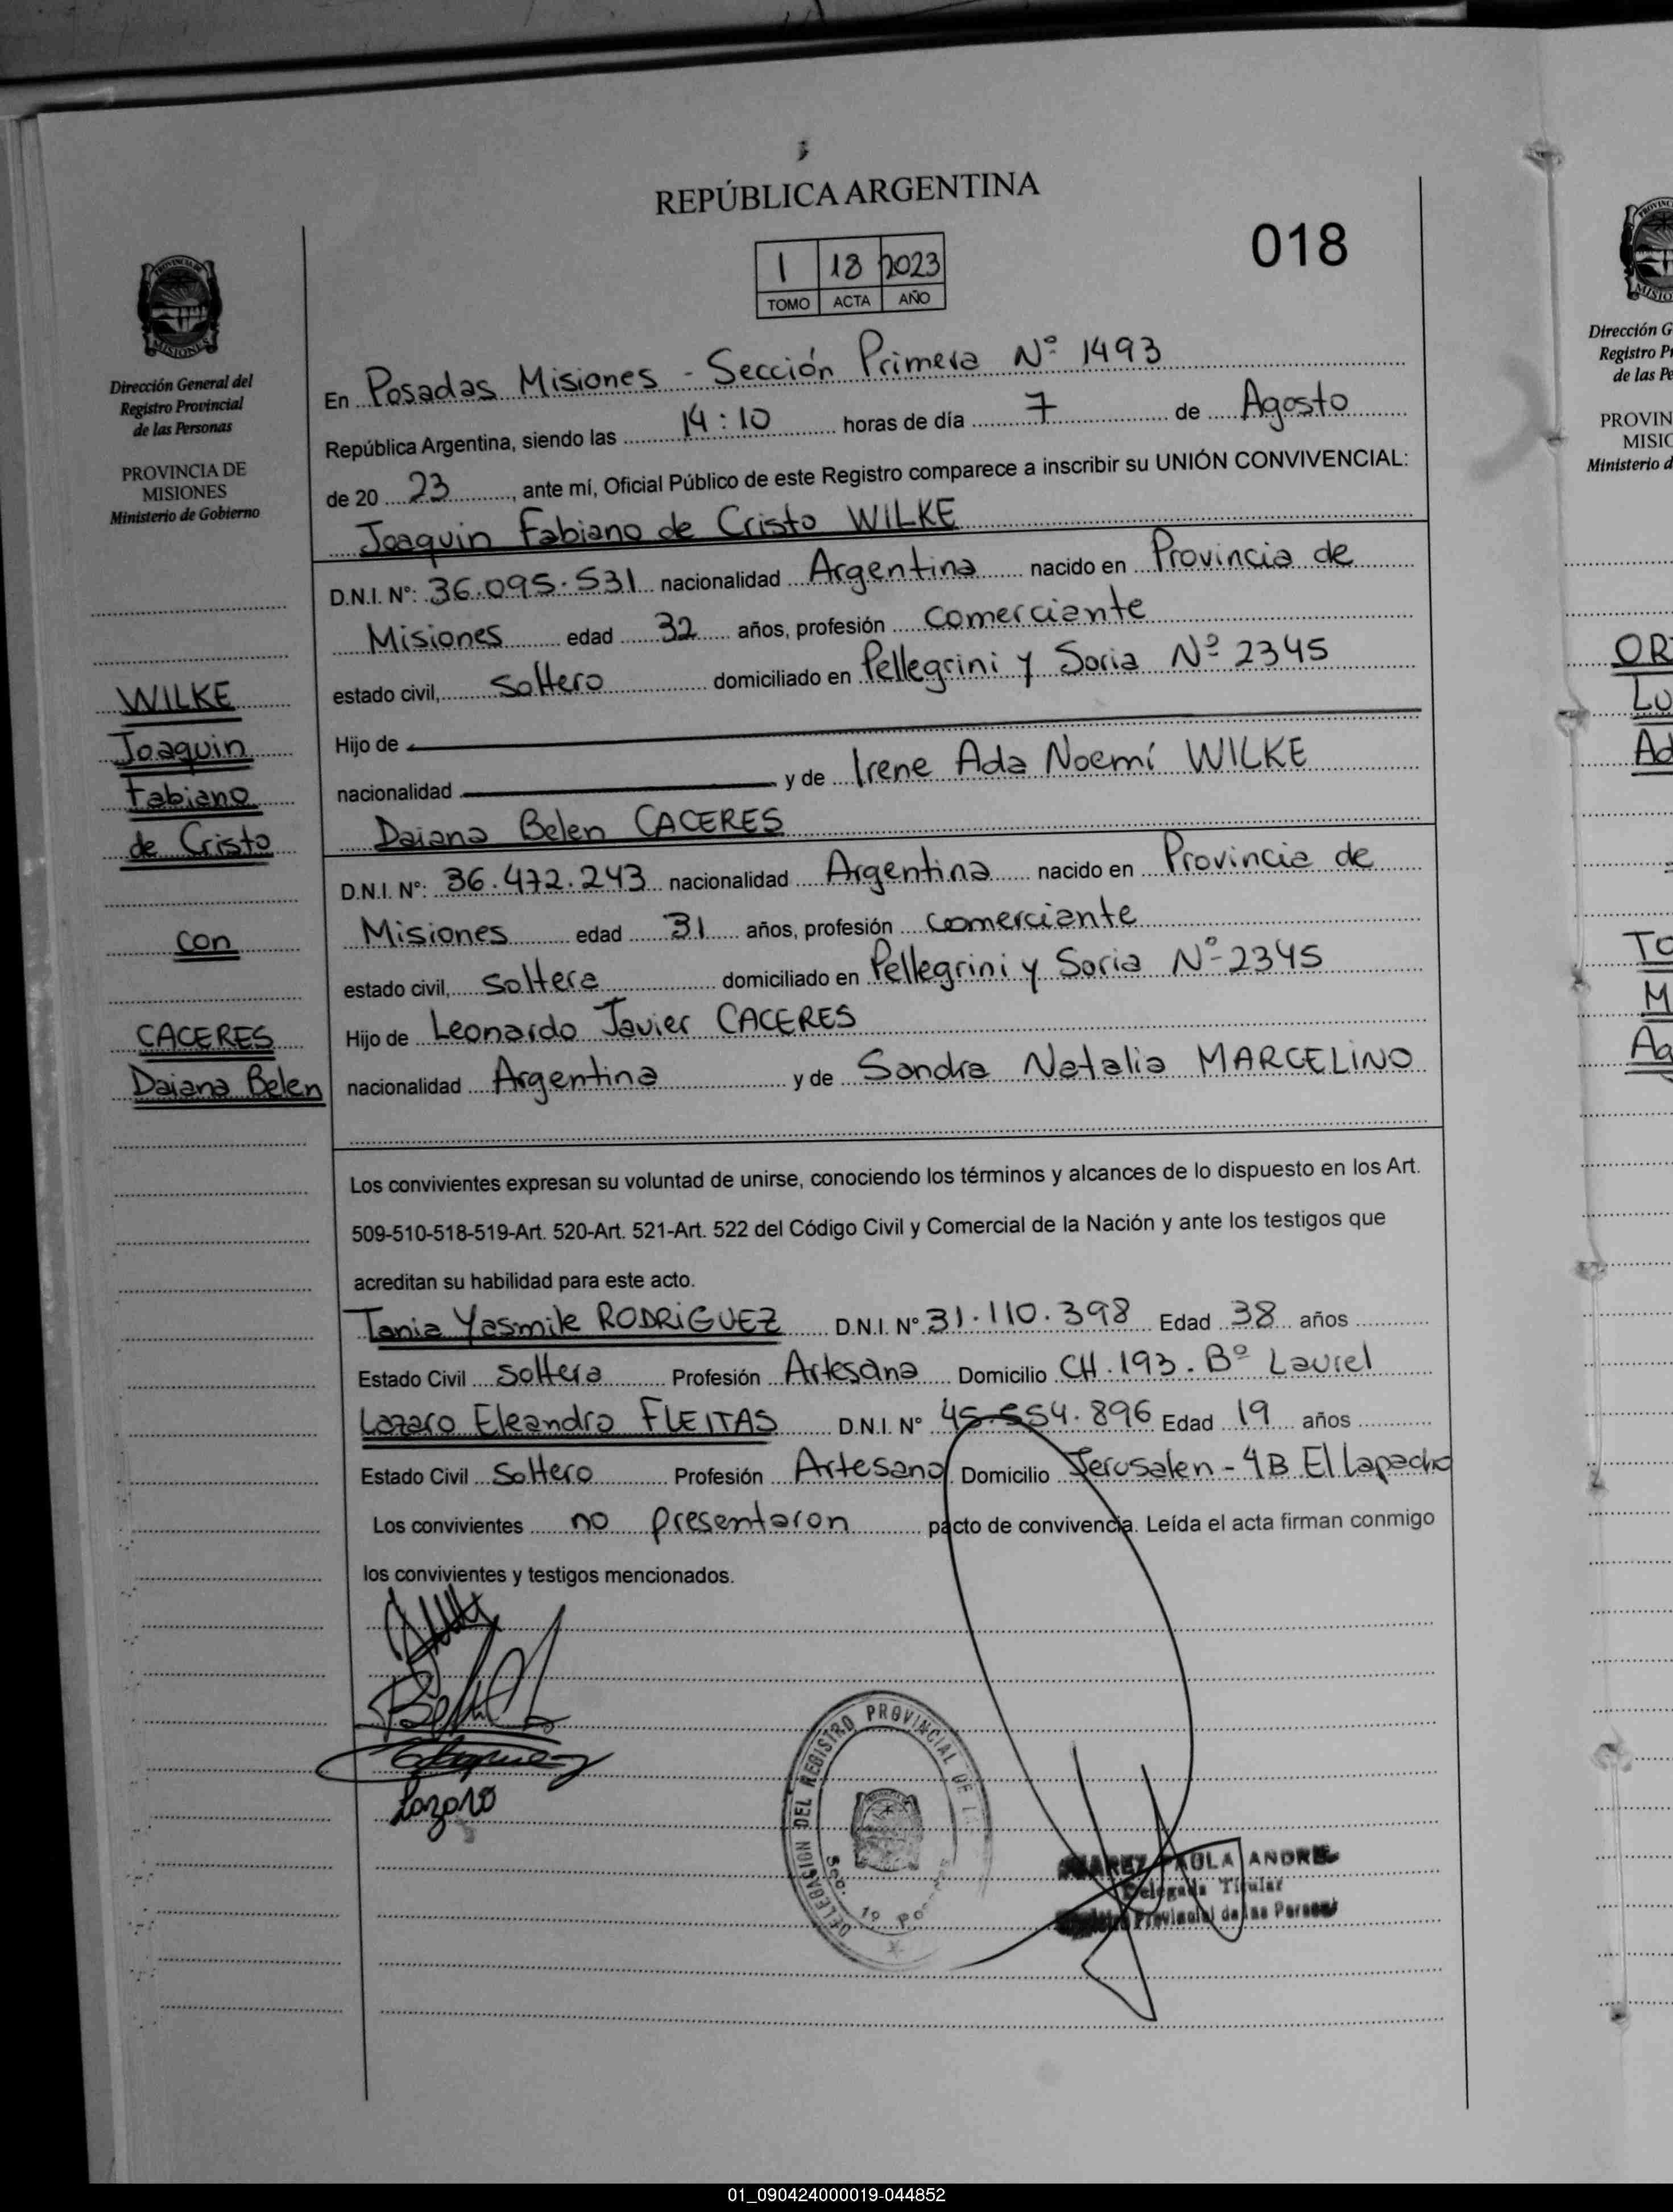 REPÚBLICA ARGENTINA
018
1 18 2023
TOMO ACTA AÑO
PROVINCIA DE
MISIONES
Dirección General del
Registro Provincial
de las Personas
PROVINCIA DE
MISIONES
Ministerio de Gobierno
WILKE
Joaquin
Fabiano
de Cristo
con
CACERES
Daiana Belen
En Posadas Misiones - Sección Primera Nº 1493
República Argentina, siendo las 14:10 horas de día 7 de Agosto
de 20 23, ante mí, Oficial Público de este Registro comparece a inscribir su UNIÓN CONVIVENCIAL:
Joaquin Fabiano de Cristo WILKE
D.N.I. Nº: 36.095.531 nacionalidad Argentina nacido en Provincia de
Misiones edad 32 años, profesión comerciante
estado civil, soltero domiciliado en Pellegrini y Soria Nº 2345
Hijo de
nacionalidad y de Irene Ada Noemí WILKE
Daiana Belen CACERES
D.N.I. Nº: 36.472.243 nacionalidad Argentina nacido en Provincia de
Misiones edad 31 años, profesión comerciante
estado civil, soltera domiciliado en Pellegrini y Soria Nº 2345
Hijo de Leonardo Javier CACERES
nacionalidad Argentina y de Sandra Natalia MARCELINO
Los convivientes expresan su voluntad de unirse, conociendo los términos y alcances de lo dispuesto en los Art.
509-510-518-519-Art. 520-Art. 521-Art. 522 del Código Civil y Comercial de la Nación y ante los testigos que
acreditan su habilidad para este acto.
Tania Yasmile RODRiGUEZ D.N.I. Nº 31.110.398 Edad 38 años
Estado Civil soltera Profesión Artesana Domicilio CH.193. Bº Laurel
Lazaro Eleandro FLEITAS D.N.I. Nº 45.554.896 Edad 19 años
Estado Civil Soltero Profesión Artesano Domicilio Jerusalen - 4B El Lapacho
Los convivientes no presentaron pacto de convivencia. Leída el acta firman conmigo
los convivientes y testigos mencionados.
Lazaro
DELEGACION DEL REGISTRO PROVINCIAL DE
Sec. 1º
PAULA ANDREA
Delegada Titular
Provincial de las Personas
Dirección G
Registro Pr
de las Pe
PROVIN
MISIO
Ministerio d
OR
Lu
Ad
To
M
Ag
01_090424000019-044852